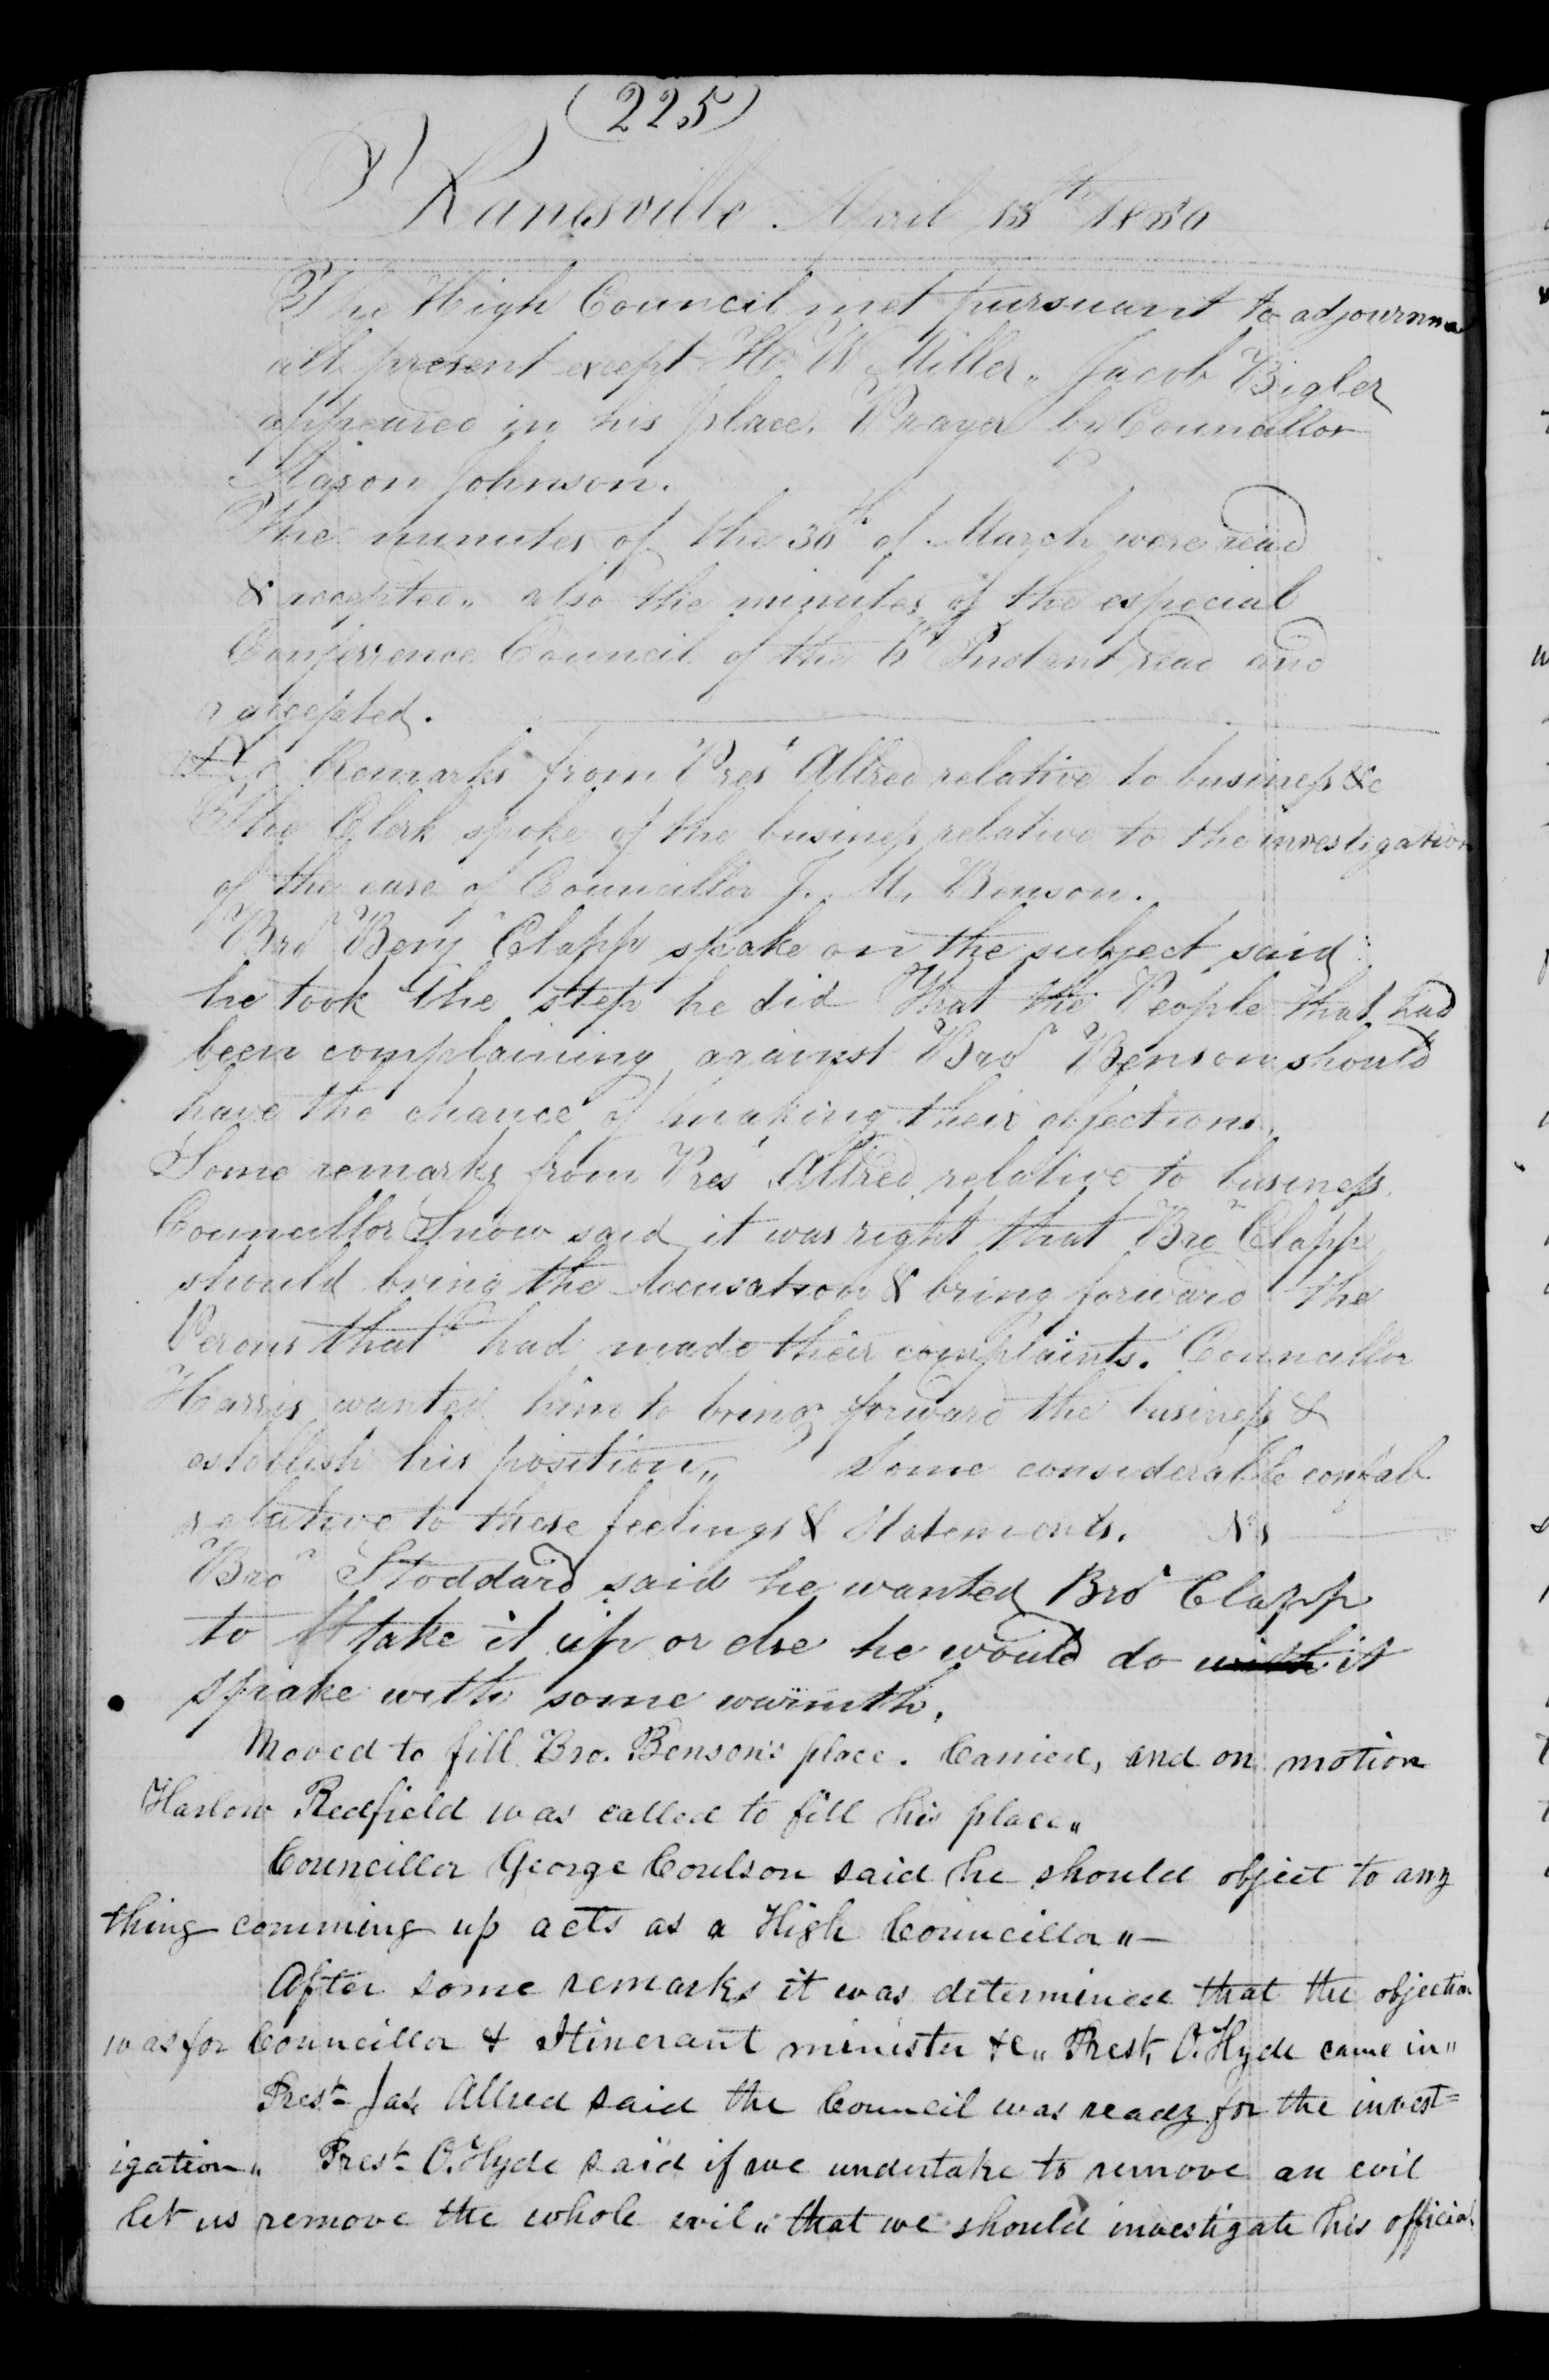 (225)
Kanesville. April 13th 1850
The High Council met pursuant to adjournme
all present except H. W. Miller,, Jacob Bigler
appeared in his place. Prayer by Councillor
Aaron Johnson.
The minutes of the 30th of March were read
& accepted,, also the minutes of the especial
Conferrence Council of the 6th Instant read and
accepted.
Remarks from Prest Allred relative to business &c
The Clerk spoke of the business relative to the investigation
of the case of Councillor J. M. Benson.
Bro Benj Clapp spake on the subject said
he took the step he did That the People that had
been complaining against Bro Benson should
have the chance of making their objections.
Some remarks from Prest Allred relative to business.
Councillor Snow said it was right that Bro Clapp
should bring the Accusation & bring forward the
Perons that had made their complaints. Councillor
Harris wanted him to bring forward the business &
establish his position,, Some considerable confab
relative to these feelings & Statements.
Bro Stoddard said he wanted Bro Clapp
to take it up or else he would do with it
spake with some warmth.
Moved to fill Bro. Benson's place. Carried, and on motion
Harlow Redfield was called to fill his place,,
Councillor George Coulson said he should object to any
thing comming up acts as a High Councillor,,—
After some remarks it was determined that the objection
was for Councillor & Itinerant minister &c,, Prest. O. Hyde came in,,
Prest Jas. Allred said the Council was ready for the invest=
igation,, Prest O. Hyde said if we undertake to remove an evil
let us remove the whole evil,, that we should investigate his official